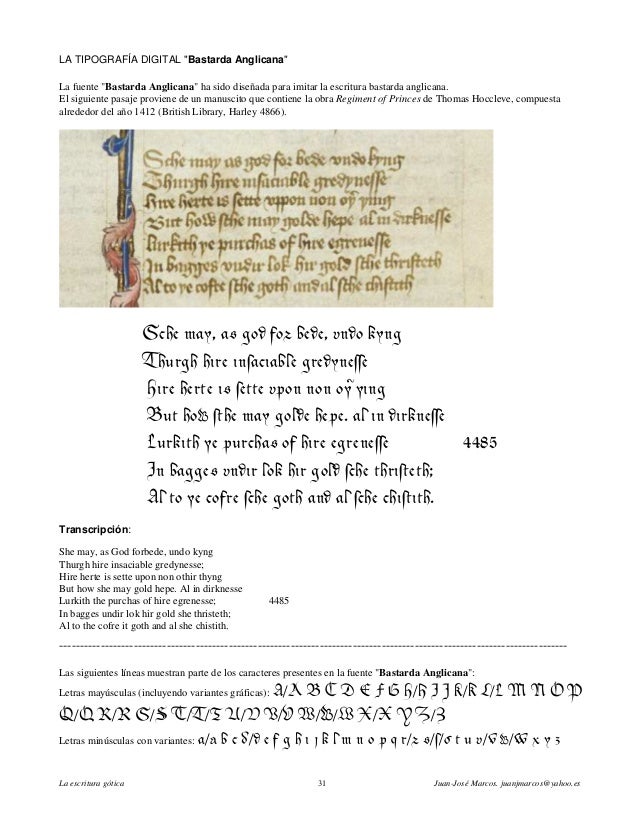 LA TIPOGRAFÍA DIGITAL "Bastarda Anglicana"
La fuente "Bastarda Anglicana" ha sido diseñada para imitar la escritura bastarda anglicana.
El siguiente pasaje proviene de un manuscito que contiene la obra Regiment of Princes de Thomas Hoccleve, compuesta
alrededor del año 1412 (British Library, Harley 4866).
Sche may as god for bede vndo kyng
Thurgh hire insaciable gredynesse
hire herte is sette vppon non oþ ying
But how sche may golde hepe al in dirknesse
Lurkith ye purchas of hire egrenesse
In bagges vndir lok hir gold sche thristeth
Al to ye cofre sche goth and al sche chistith
Sche may, as god for bede, vndo kyng
Thurgh hire insaciable gredynesse
hire herte is sette vpon non oy ying
But how sche may golde hepe. al in dirknesse
Lurkith ye purchas of hire egrenesse 4485
In bagges vndir lok hir gold sche thristeth;
Al to ye cofre sche goth and al sche chistith.
Transcripción:
She may, as God forbede, undo kyng
Thurgh hire insaciable gredynesse;
Hire herte is sette upon non othir thyng
But how she may gold hepe. Al in dirknesse
Lurkith the purchas of hire egrenesse; 4485
In bagges undir lok hir gold she thristeth;
Al to the cofre it goth and al she chistith.
Las siguientes líneas muestran parte de los caracteres presentes en la fuente "Bastarda Anglicana":
Letras mayúsculas (incluyendo variantes gráficas): A/A B C D E F G h/h I J k/k L/L M N O P
Q/Q R/R S/S T/T/T U/U V/V W/W/W X/X Y Z/3
Letras minúsculas con variantes: a/a b c d/d e f g h i j k l m n o p q r/z s/ſ/s t u v/v w/w x y z
La escritura gótica 31 Juan-José Marcos. juanjmarcos@yahoo.es